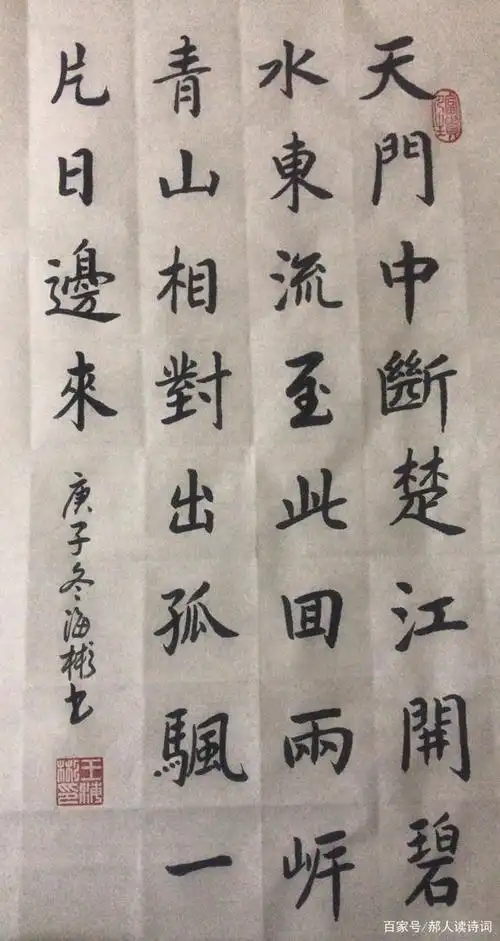 天門中斷楚江開碧
水東流至此回兩岸
青山相對出孤颿一
片日邊來
庚子冬海彬书
王海彬印
百家号/郝人读诗词